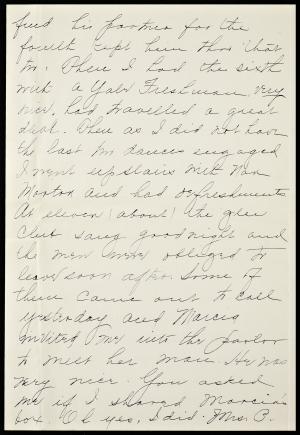 find his partner for the
fourth kept him thro' that
too. Then I had the sixth
with a Yale Freshman, very
nice, had travelled a great
deal. Then as I did not have
the last two dances engaged
I went upstairs with Nan
Morton and had refreshments
At eleven (about) the glee
club sang goodnight and
the men were obliged to
leave soon after. Some of
them came out to call
yesterday and Marcia
invited me into the parlor
to meet her man. He was
very nice. You asked
me if I shared Marcia's
box. Oh yes, I did. Mrs. P.